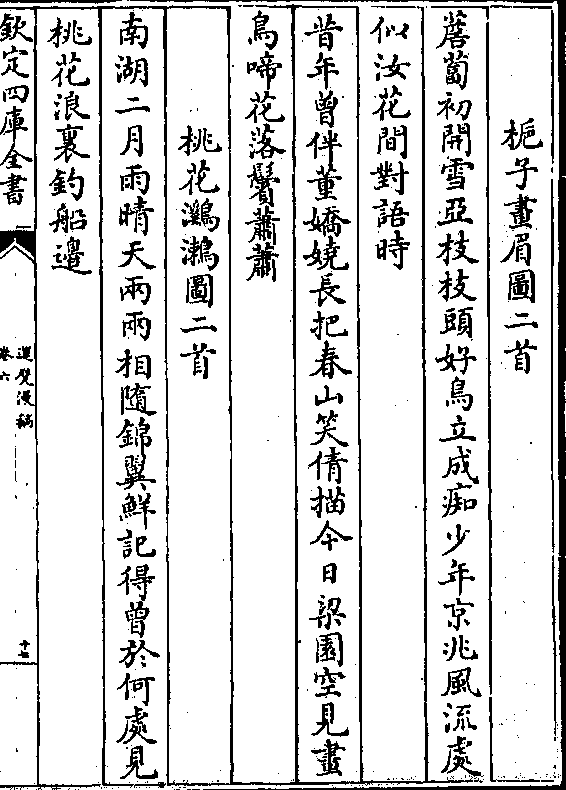 梔子畫眉圖二首
薝蔔初開雪亞枝枝頭好鳥立成痴少年京兆風流處
似汝花間對語時
昔年曾伴董嬌嬈長把春山笑倩描今日梁園空見畫
鳥啼花落鬢蕭蕭
桃花鸂鶒圖二首
南湖二月雨晴天兩兩相隨錦翼鮮記得曾於何處見
桃花浪裏釣船邉
欽定四庫全書
運甓漫稿
卷六